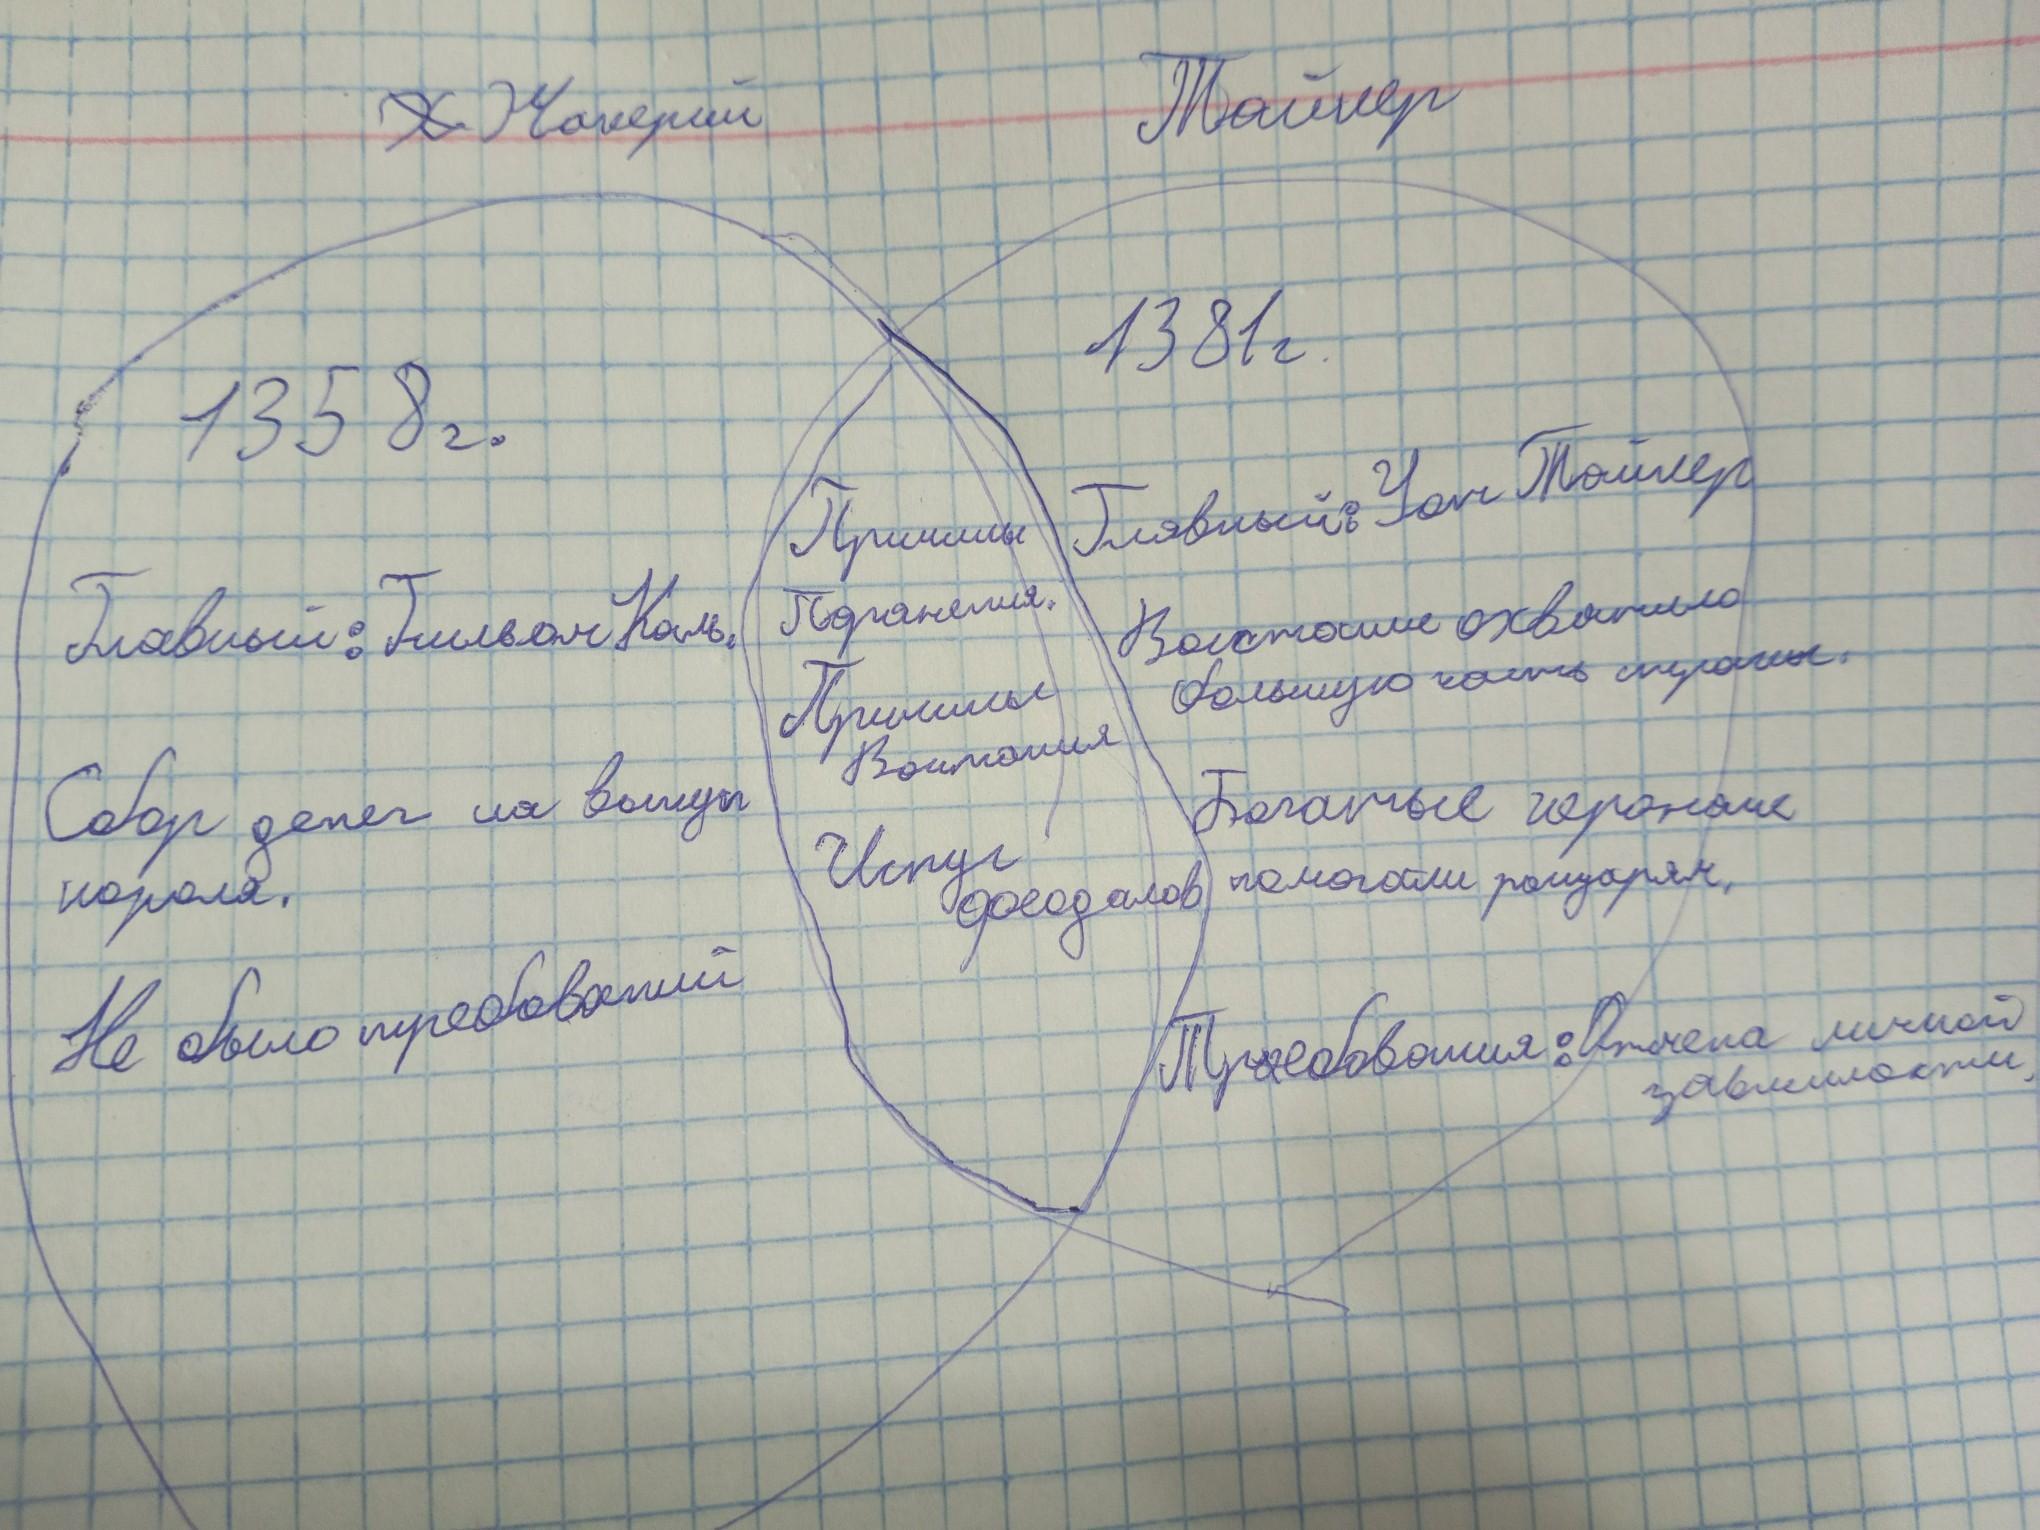 Жакерий
Тайлер
1358г.
1381г.
Главный: Гильом Каль.
Сбор денег на выкуп
короля.
Не было требований
Причины
Поражения.
Причины
Востания
Испуг
феодалов
Глявный: Уот Тайлер
Востание охватило
большую часть страны.
Богатые горожане
помогали рыцарям.
Требования: Отмена личной
зависимости.